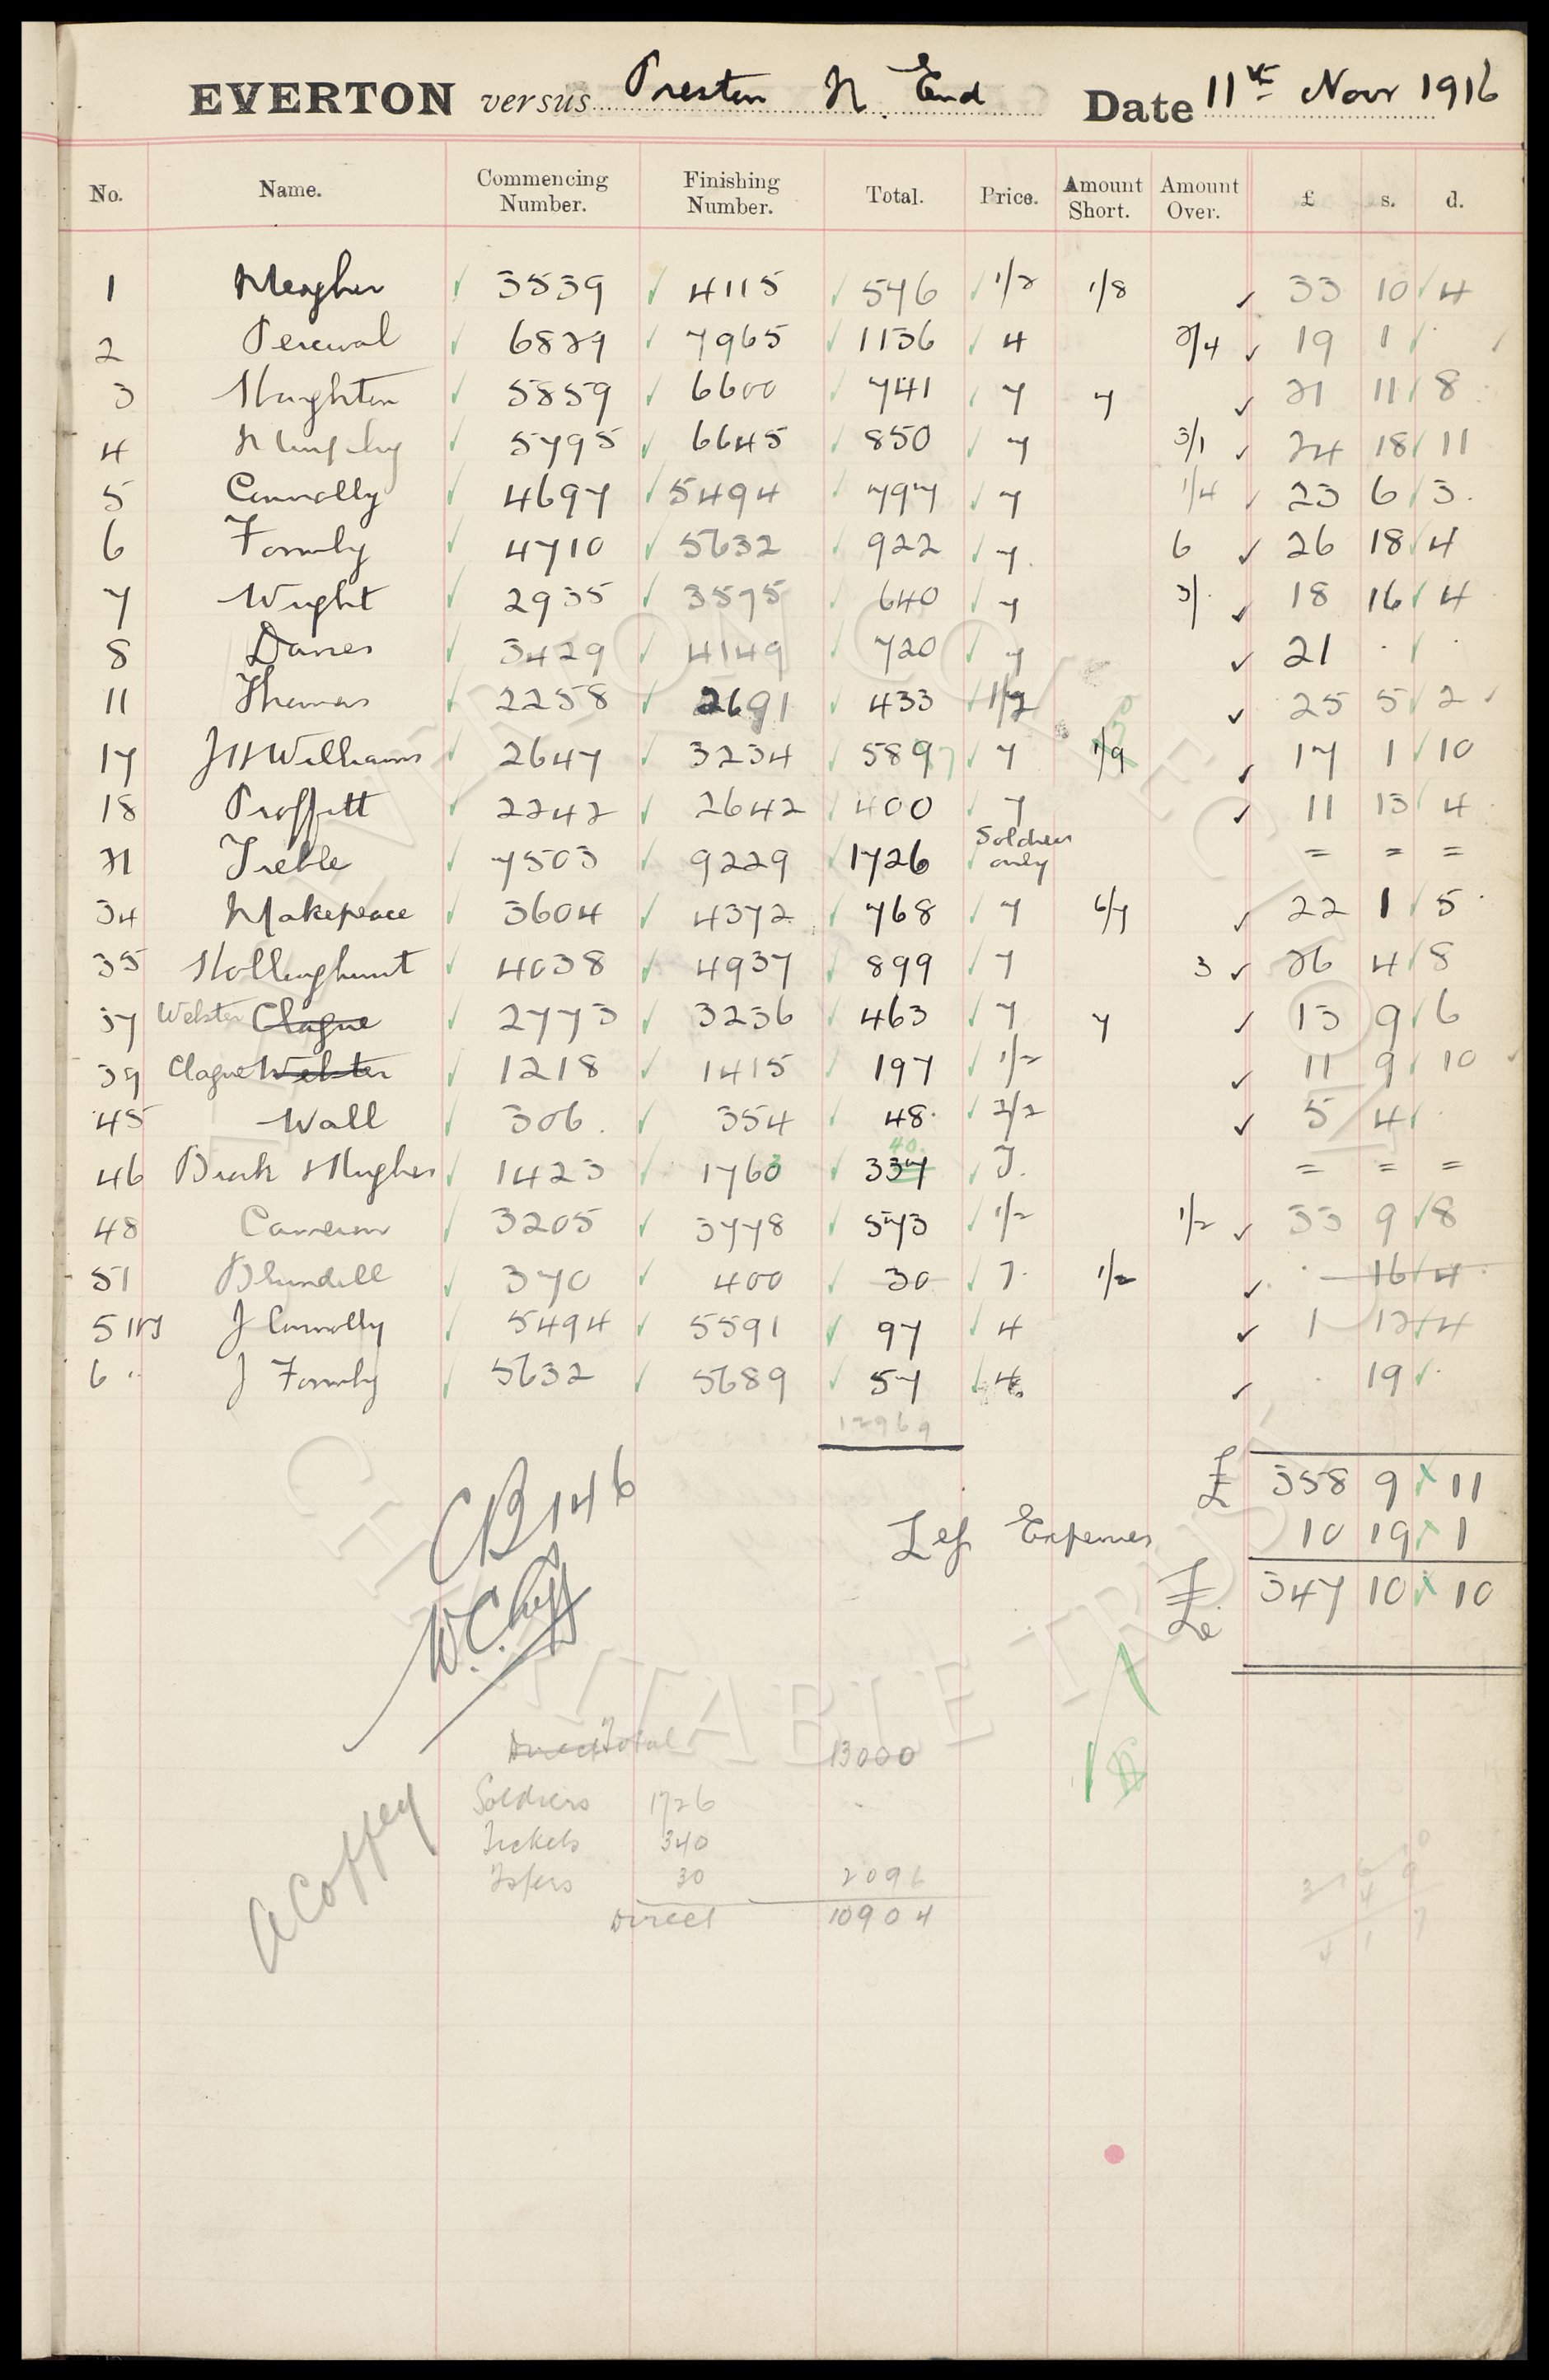 EVERTON versus Preston N. End Date 11th Novr 1916
No. Name. Commencing Number. Finishing Number. Total. Price. Amount Short. Amount Over. £ s. d.
1 Meagher 3539 4115 576 1/2 1/8 33 10 4
2 Percival 6829 7965 1136 4 2/4 19 1 .
3 Houghton 5859 6600 741 7 7 21 11 8
4 Murphy 5795 6645 850 7 3/1 24 18 11
5 Connolly 4697 5494 797 7 1/4 23 6 3
6 Formby 4710 5632 922 7 6 26 18 4
7 Wright 2935 3575 640 7 3/. 18 16 4
8 Davies 3429 4149 720 7 21 . .
11 Thomas 2258 2691 433 1/2 25 5 2
17 J H Williams 2647 3234 589 7 7 1/9 17 1 10
18 Proffitt 2242 2642 400 7 11 13 4
21 Treble 7503 9229 1726 Soldiers only = = =
34 Makepeace 3604 4372 768 7 6/7 22 1 5
35 Hollinghurst 4038 4937 899 7 3 26 4 8
37 Webster Clague 2773 3236 463 7 7 13 9 6
39 Clague Webster 1218 1415 197 1/2 11 9 10
45 Wall 306 354 48 2/2 5 4 .
46 Hughes 1423 1763 337 40 T. = = =
48 Cameron 3205 3778 573 1/2 1/2 33 9 8
51 Blundell 370 400 30 7 1/2 . 16 4
5 J Connolly 5494 5591 97 4 1 12 4
6 " J Formby 5632 5689 57 4 . 19 .
12969
£ 358 9 11
CB 146
Less Expenses 10 19 1
£ 347 10 10
W.C. Cuff
Direct Total 13000
Soldiers 1726
Tickets 340
Tsfers 30 2096
Direct 10904
A Coffey
EVERTON COLLECTION CHARITABLE TRUST